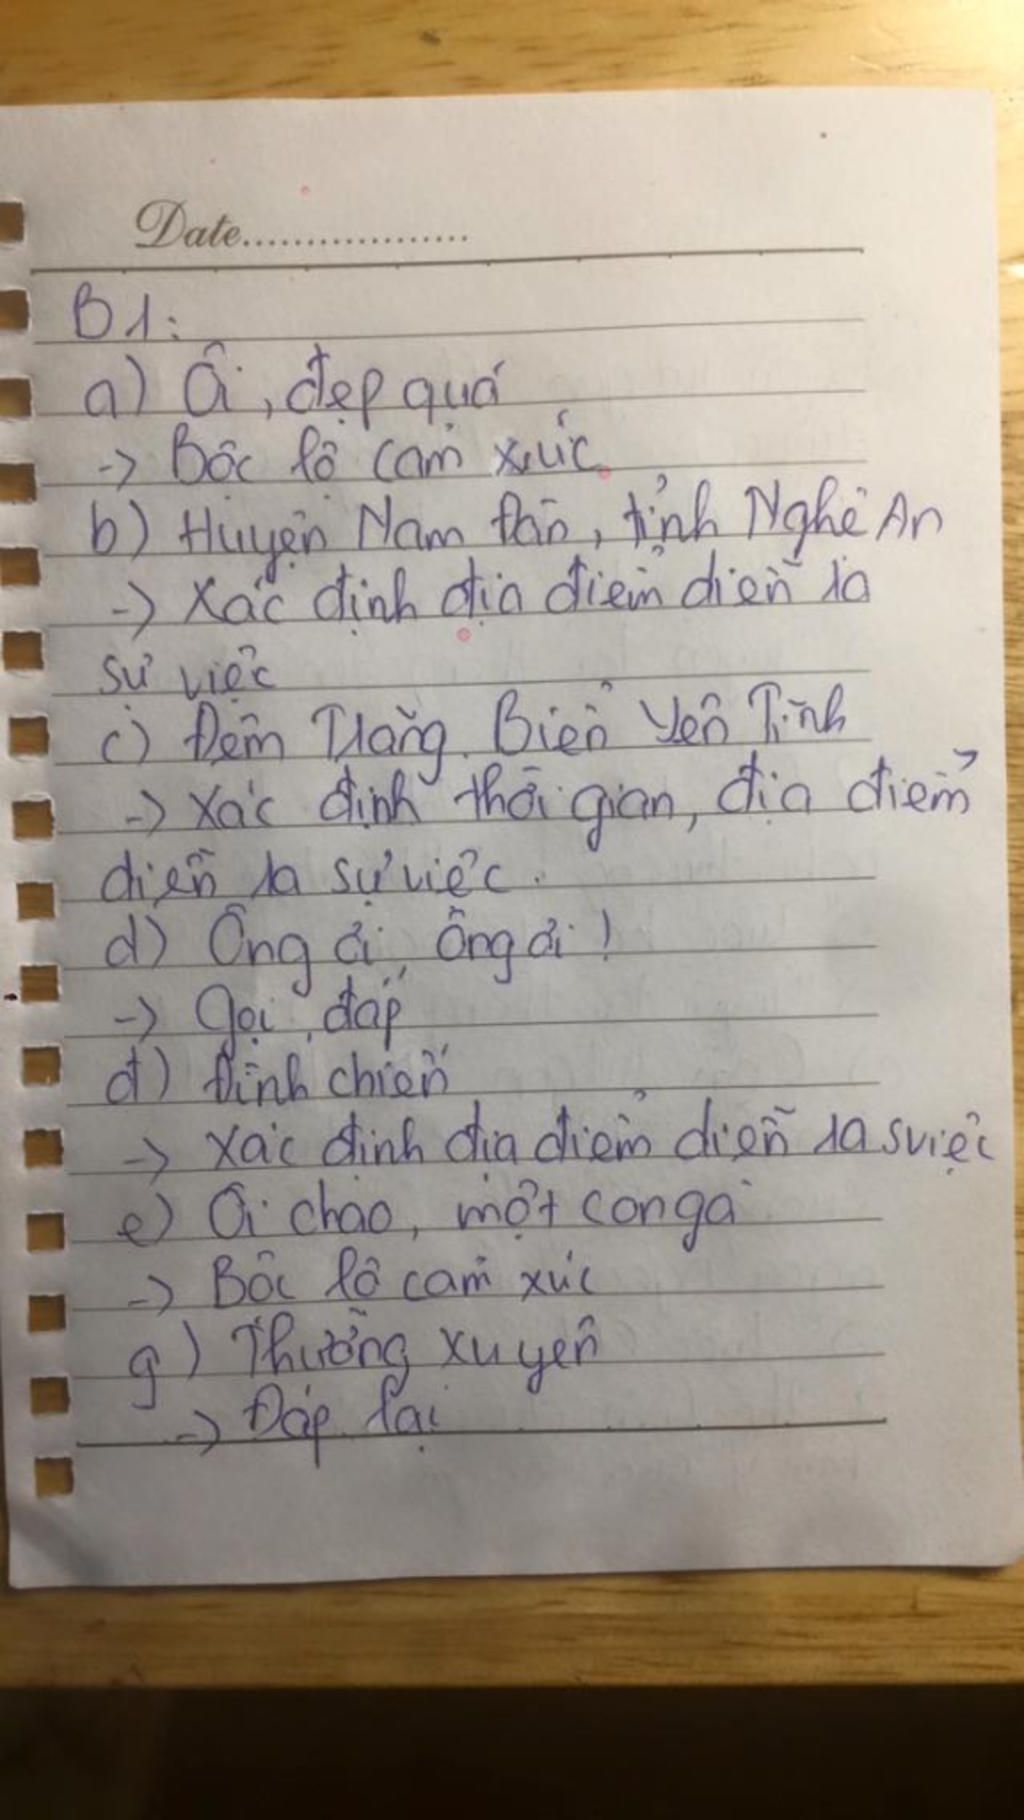 Date..................
B1:
a) Ôi, đẹp quá
-> Bộc lộ cảm xúc.
b) Huyện Nam Đàn, tỉnh Nghệ An
-> Xác định địa điểm diễn ra
sự việc
c) Đêm Trăng. Biển Yên Tĩnh
-> Xác định thời gian, địa điểm
diễn ra sự việc.
d) Ông ơi, Ông ơi!
-> Gọi, đáp
đ) Đình chiến
-> Xác định địa điểm diễn ra sviệc
e) Ôi chao, một con gà
-> Bộc lộ cảm xúc
g) Thường xuyên
-> Đáp lại